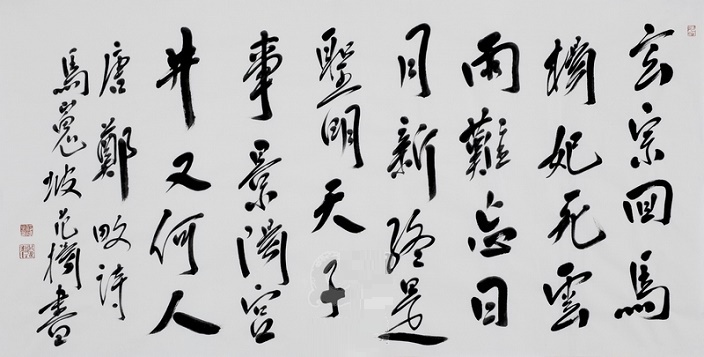 玄宗回馬
楊妃死雲
雨難忘日
月新終是
聖明天子
事景陽宮
井又何人
唐鄭畋詩
馬嵬坡范楊書